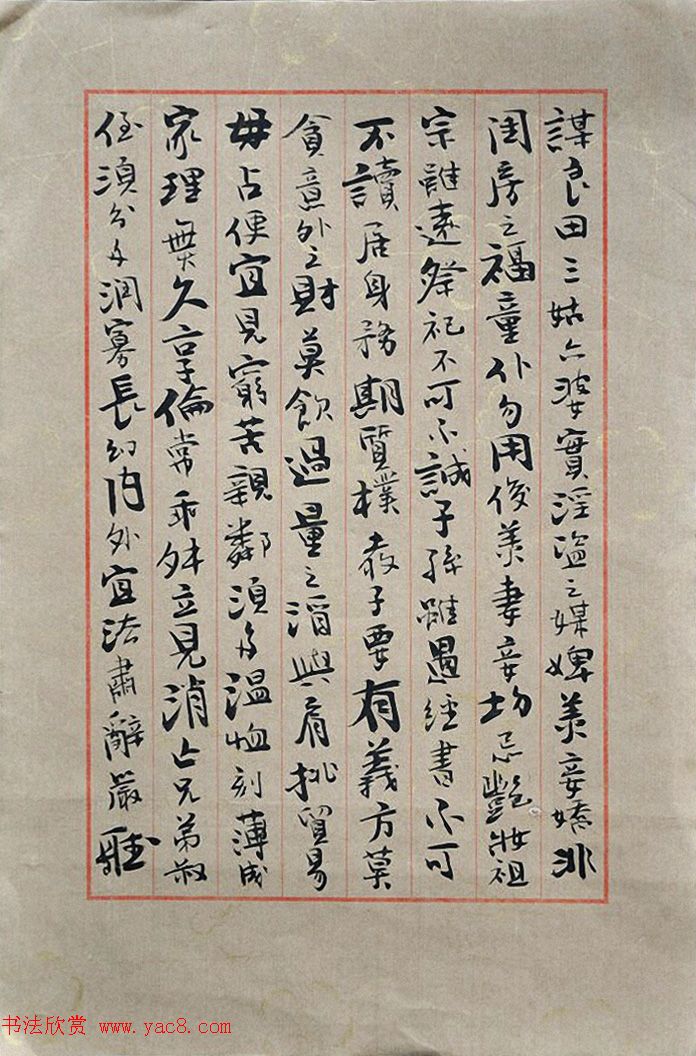 謀良田三姑六婆實淫盗之媒婢美妾嬌非
閨房之福童仆勿用俊美妻妾切忌艷妝祖
宗雖遠祭祀不可不誠子孫雖愚經書不可
不讀居身務期質樸教子要有義方莫
貪意外之財莫飲過量之酒與肩挑貿易
毋占便宜見窮苦親鄰須多温恤刻薄成
家理無久享倫常乖舛立見消亡兄弟叔
侄須分多潤寡長幼内外宜法肅辭嚴聽
书法欣赏 www.yac8.com